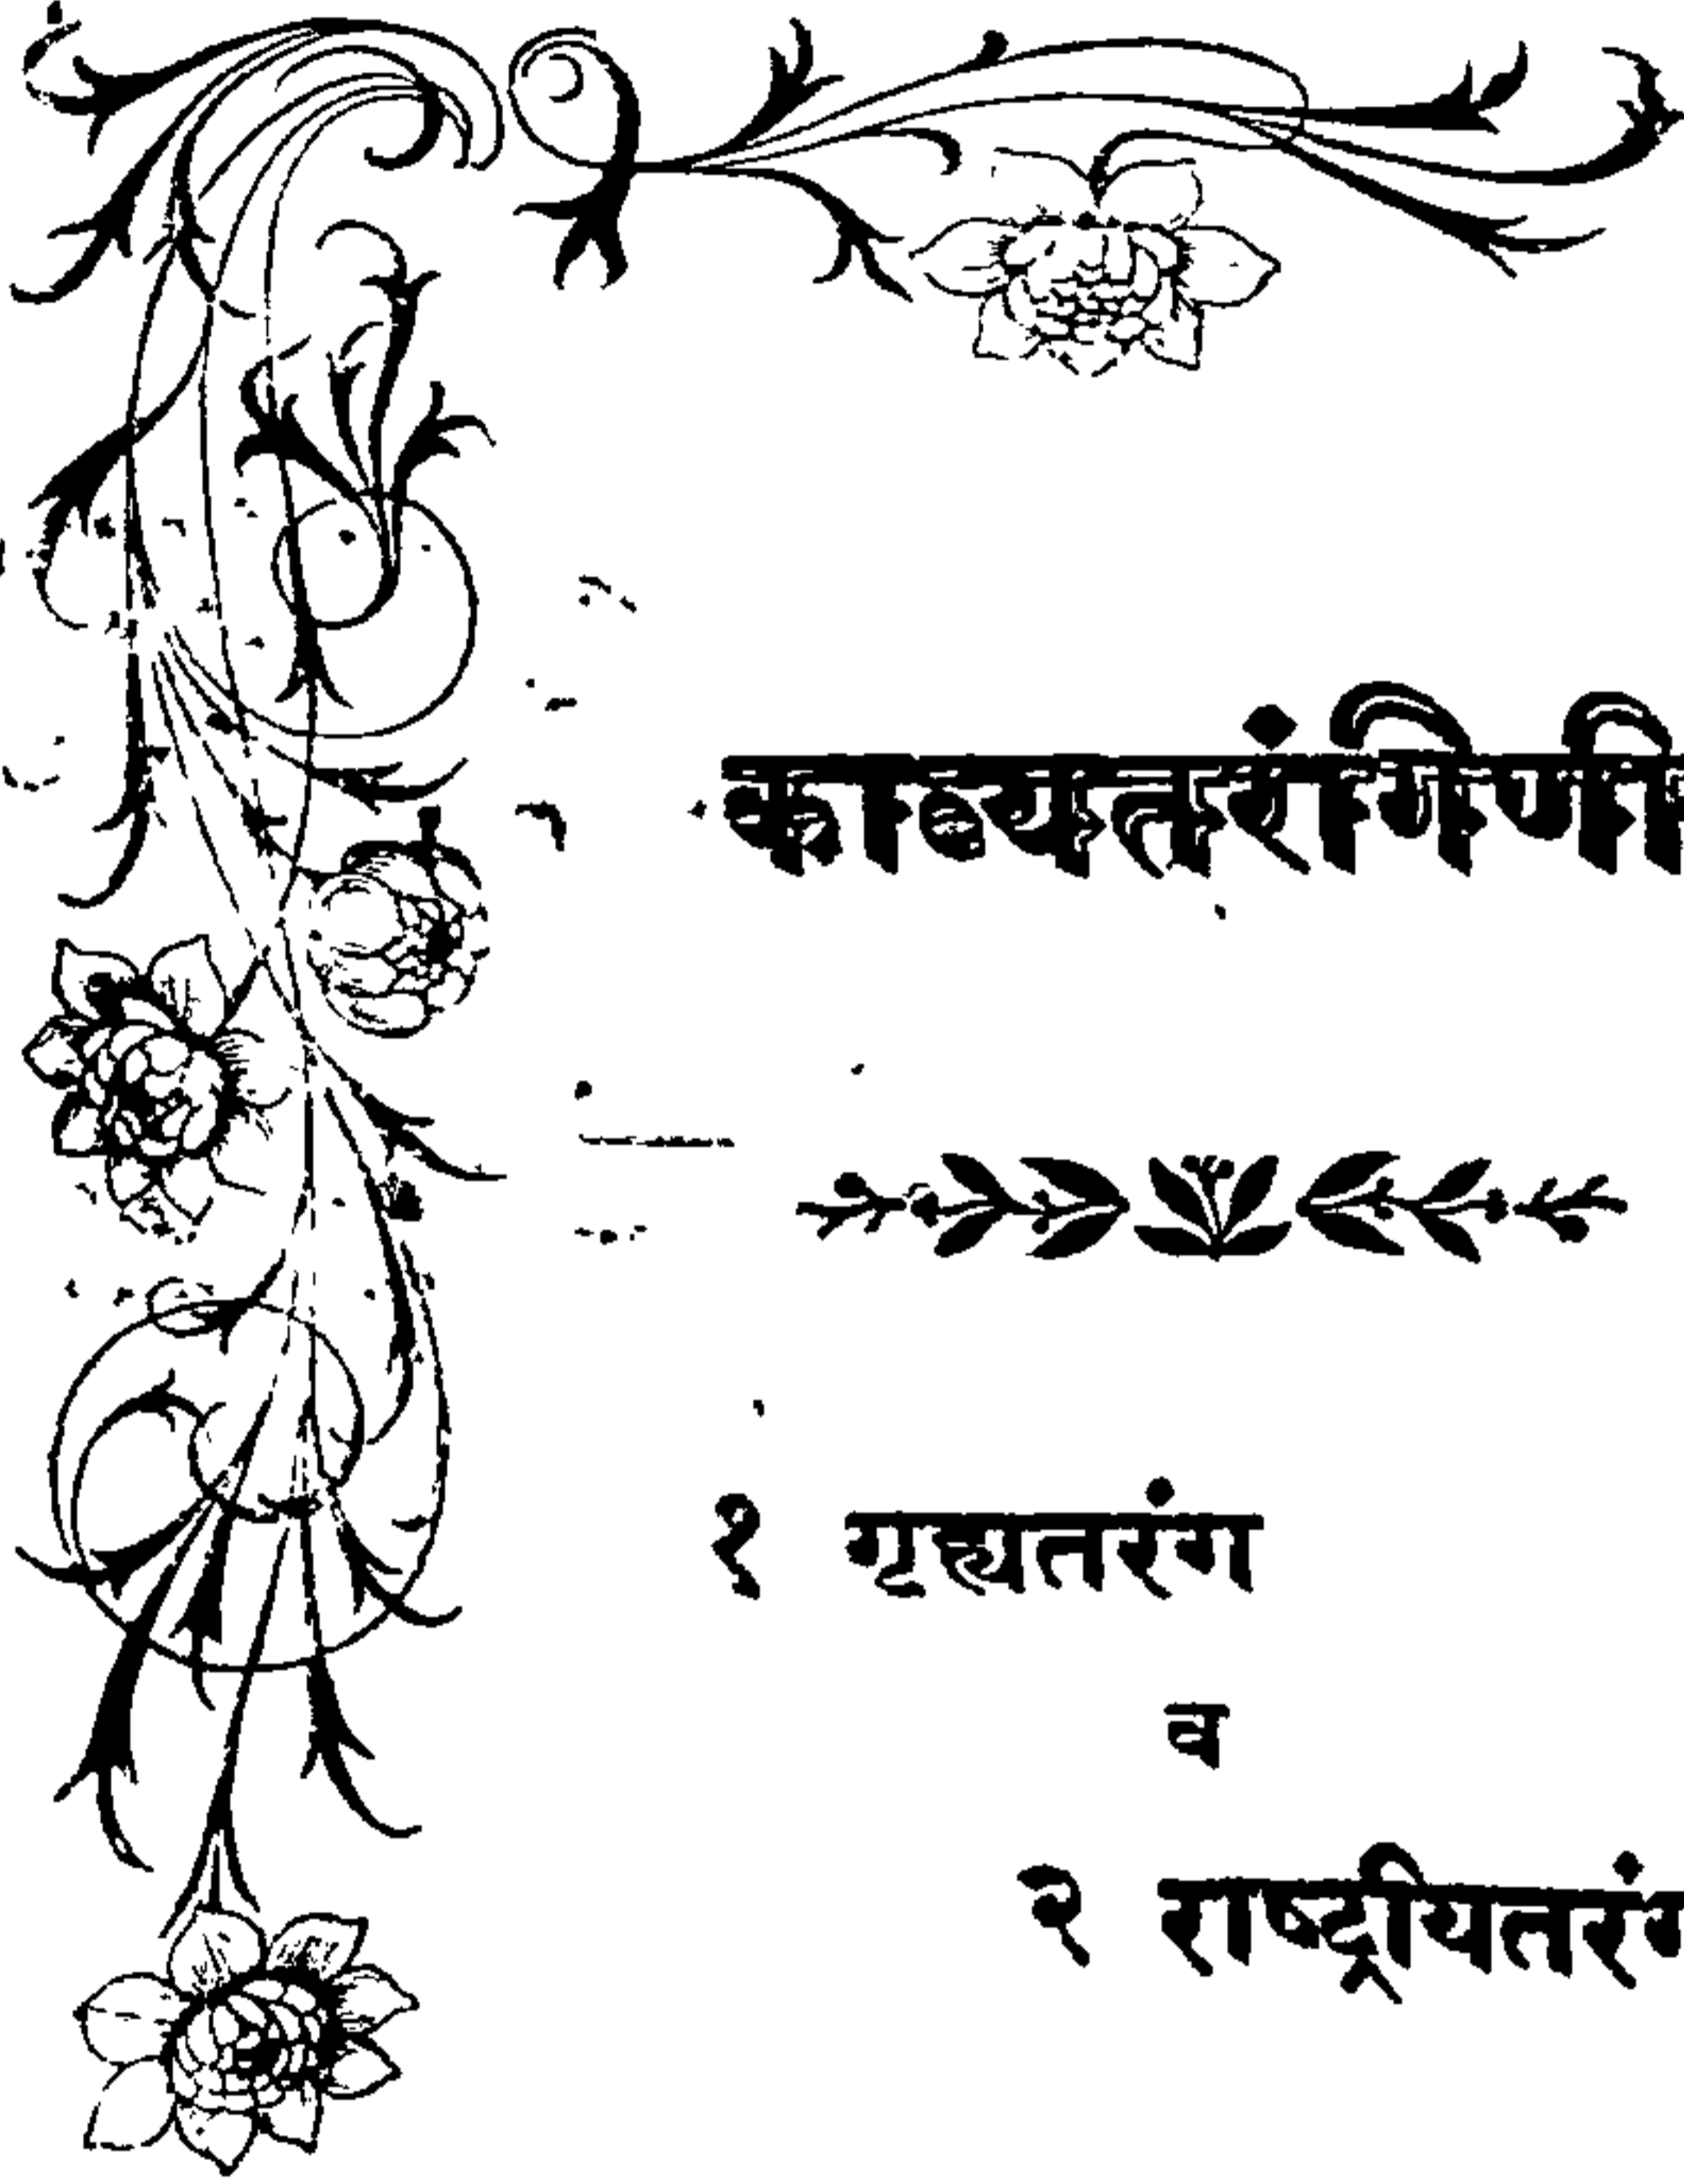 काव्यतरंगिणी
१ गृह्यतरंग
व
२ राष्ट्रीयतरंग